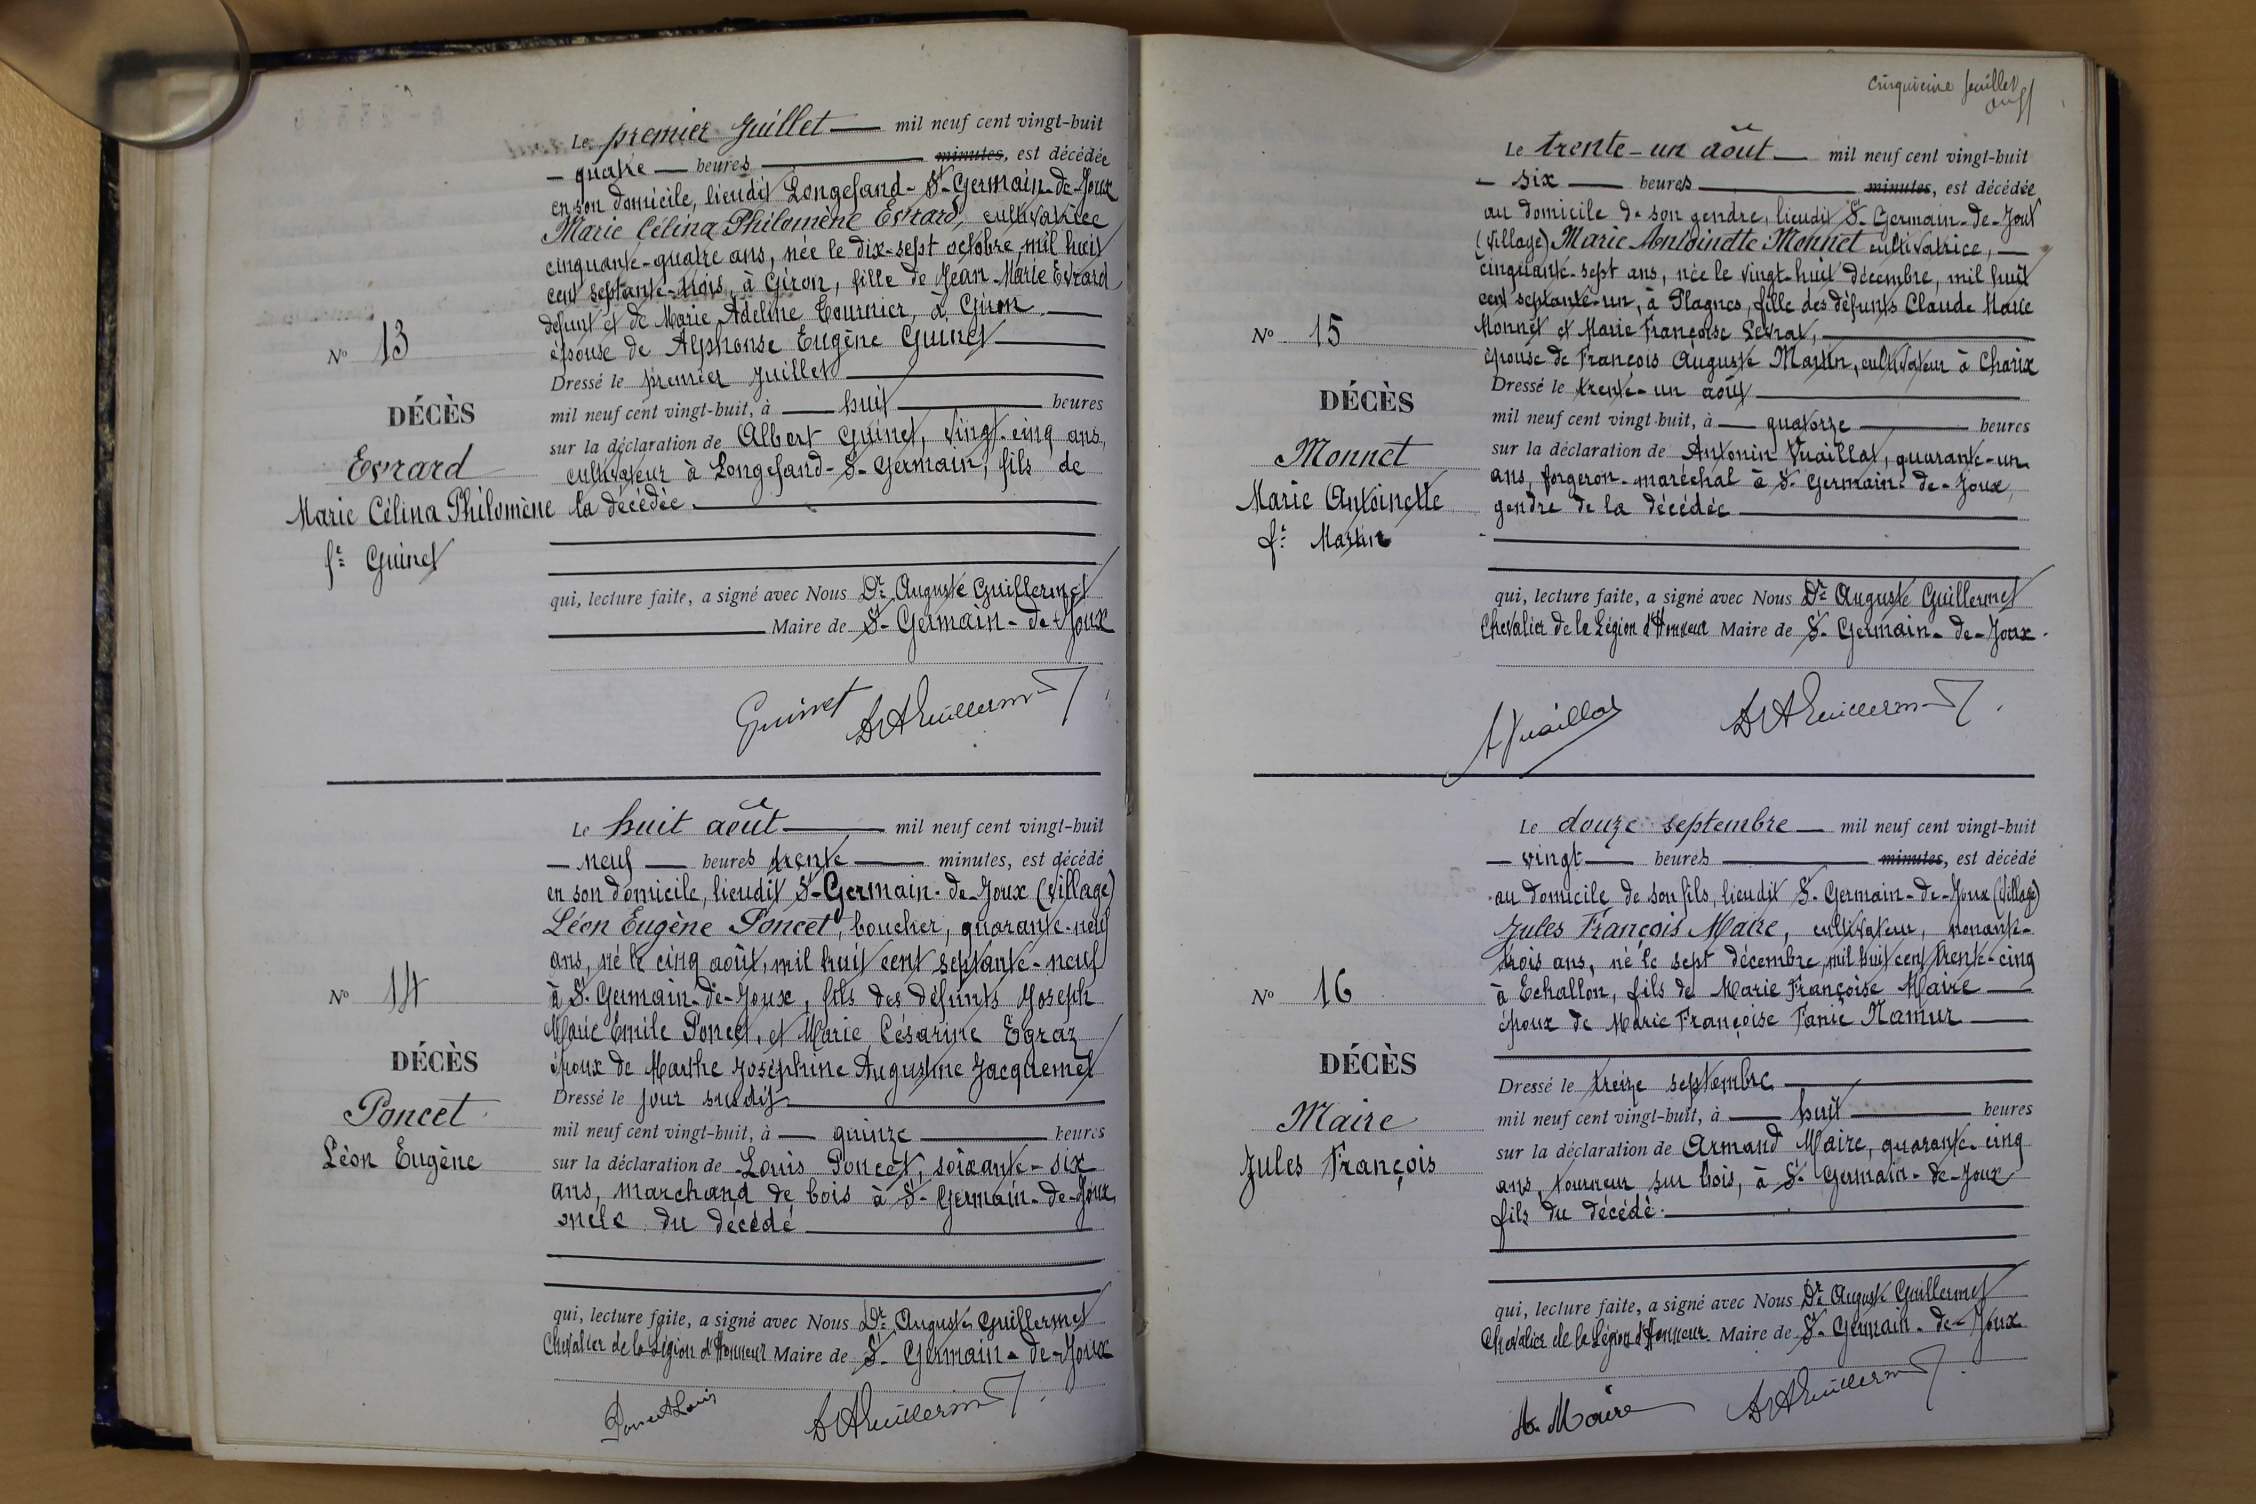 Le premier Juillet — mil neuf cent vingt-huit
— quatre — heures — minutes, est décédée
en son domicile, lieudit Longefand - St-Germain-de-Joux
Marie Célina Philomène Evrard, cultivatrice
cinquante-quatre ans, née le dix-sept octobre, mil huit
cent septante-trois, à Giron, fille de Jean-Marie Evrard
défunt et de Marie Adeline Tournier, à Giron —
épouse de Alphonse Eugène Guinet —
Dressé le premier Juillet —
mil neuf cent vingt-huit, à — huit — heures
sur la déclaration de Albert Guinet, vingt-cinq ans,
cultivateur à Longefand-St-Germain, fils de
la décédée. —
No 13
DÉCÈS
Evrard
Marie Célina Philomène
fe Guinet
qui, lecture faite, a signé avec Nous Dr Auguste Guillermet
— Maire de St-Germain-de-Joux
Guinet DrAGuillermet
Le huit août — mil neuf cent vingt-huit
— neuf — heures trente — minutes, est décédé
en son domicile, lieudit St-Germain-de-Joux (village)
Léon Eugène Poncet, boucher, quarante-neuf
ans, né le cinq août, mil huit cent septante-neuf
à St-Germain-de-Joux, fils des défunts Joseph
Marie Emile Poncet, et Marie Césarine Egraz
époux de Marthe Joséphine Augustine Jacquemet
Dressé le jour susdit —
mil neuf cent vingt-huit, à — quinze — heures
sur la déclaration de Louis Poncet, soixante-six
ans, marchand de bois à St-Germain-de-Joux,
oncle du décédé —
No 14
DÉCÈS
Poncet
Léon Eugène
qui, lecture faite, a signé avec Nous Dr Auguste Guillermet
Chevalier de la Légion d'Honneur Maire de St-Germain-de-Joux
Poncet Louis DrAGuillermet
cinquième feuillet
Le trente-un août — mil neuf cent vingt-huit
— six — heures — minutes, est décédée
au domicile de son gendre, lieudit St-Germain-de-Joux
(village) Marie Antoinette Monnet cultivatrice, —
cinquante-sept ans, née le vingt-huit décembre, mil huit
cent septante-un, à Plagnes, fille des défunts Claude Marie
Monnet et Marie Françoise Levrat, —
épouse de François Auguste Martin, cultivateur à Charix
Dressé le trente-un août —
mil neuf cent vingt-huit, à — quatorze — heures
sur la déclaration de Antonin Vuaillat, quarante-un
ans, forgeron-maréchal à St-Germain-de-Joux,
gendre de la décédée —
No 15
DÉCÈS
Monnet
Marie Antoinette
fe Martin
qui, lecture faite, a signé avec Nous Dr Auguste Guillermet
Chevalier de la Légion d'Honneur Maire de St-Germain-de-Joux.
AVuaillat DrAGuillermet
Le douze septembre — mil neuf cent vingt-huit
— vingt — heures — minutes, est décédé
au domicile de son fils, lieudit St-Germain-de-Joux (village)
Jules François Maire, cultivateur, nonante-
trois ans, né le sept décembre, mil huit cent trente-cinq
à Echallon, fils de Marie Françoise Maire —
époux de Marie Françoise Fanie Namur —
Dressé le treize septembre —
mil neuf cent vingt-huit, à — huit — heures
sur la déclaration de Armand Maire, quarante-cinq
ans, tourneur sur bois, à St-Germain-de-Joux
fils du décédé. —
No 16
DÉCÈS
Maire
Jules François
qui, lecture faite, a signé avec Nous Dr Auguste Guillermet
Chevalier de la Légion d'Honneur Maire de St-Germain-de-Joux
A. Maire DrAGuillermet